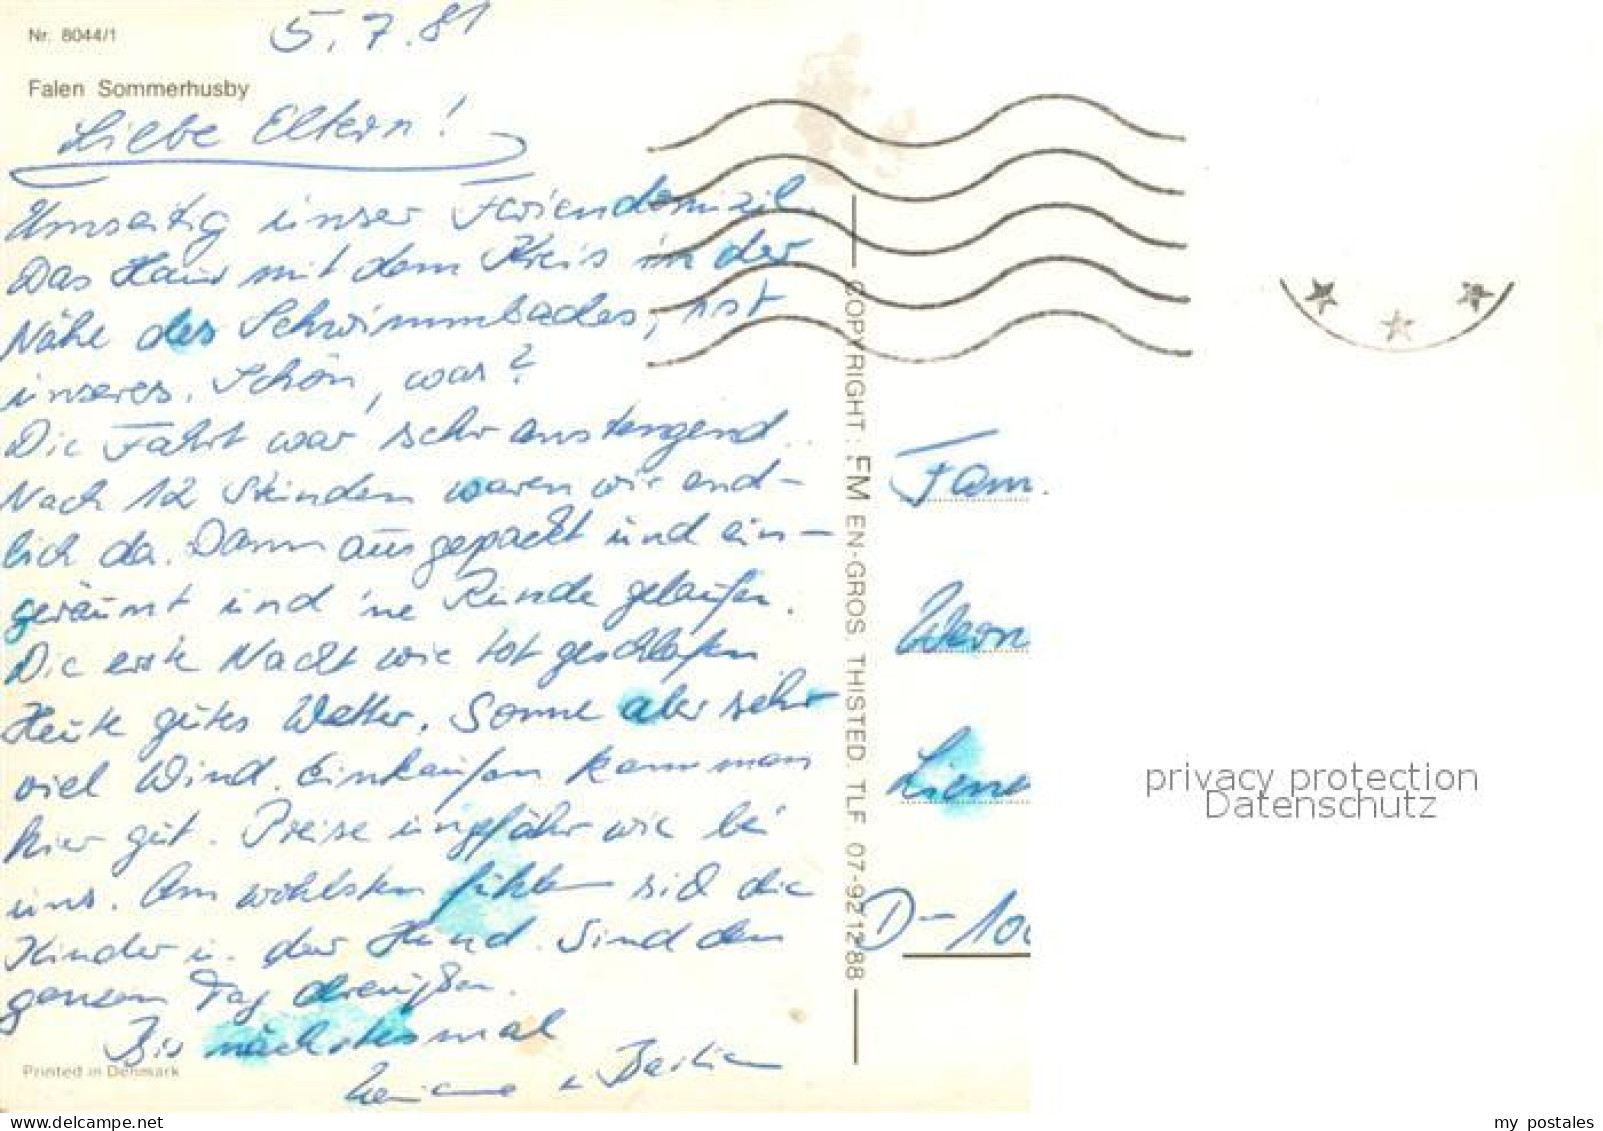 Nr. 8044/1
5.7.81
Falen Sommerhusby
Liebe Eltern!
Umseitig unser Feriendomizil.
Das Haus mit dem Kreis in der
Nähe des Schwimmbades, ist
unseres. Schön, was?
Die Fahrt war sehr anstengend..
Nach 12 Stunden waren wir end-
lich da. Dann ausgepackt und ein-
geräumt und 'ne Runde gelaufen.
Die erste Nacht wie tot geschlafen
Heute gutes Wetter. Sonne aber sehr
viel Wind. Einkaufen kann man
hier gut. Preise ungefähr wie bei
uns. Am wohlsten fühlen sich die
Kinder u. der Hund. Sind den
ganzen Tag draußen.
Bis nächstesmal
Printed in Denmark
COPYRIGHT: FM EN-GROS. THISTED. TLF. 07-921288
Fam.
D-100
privacy protection
Datenschutz
my postales